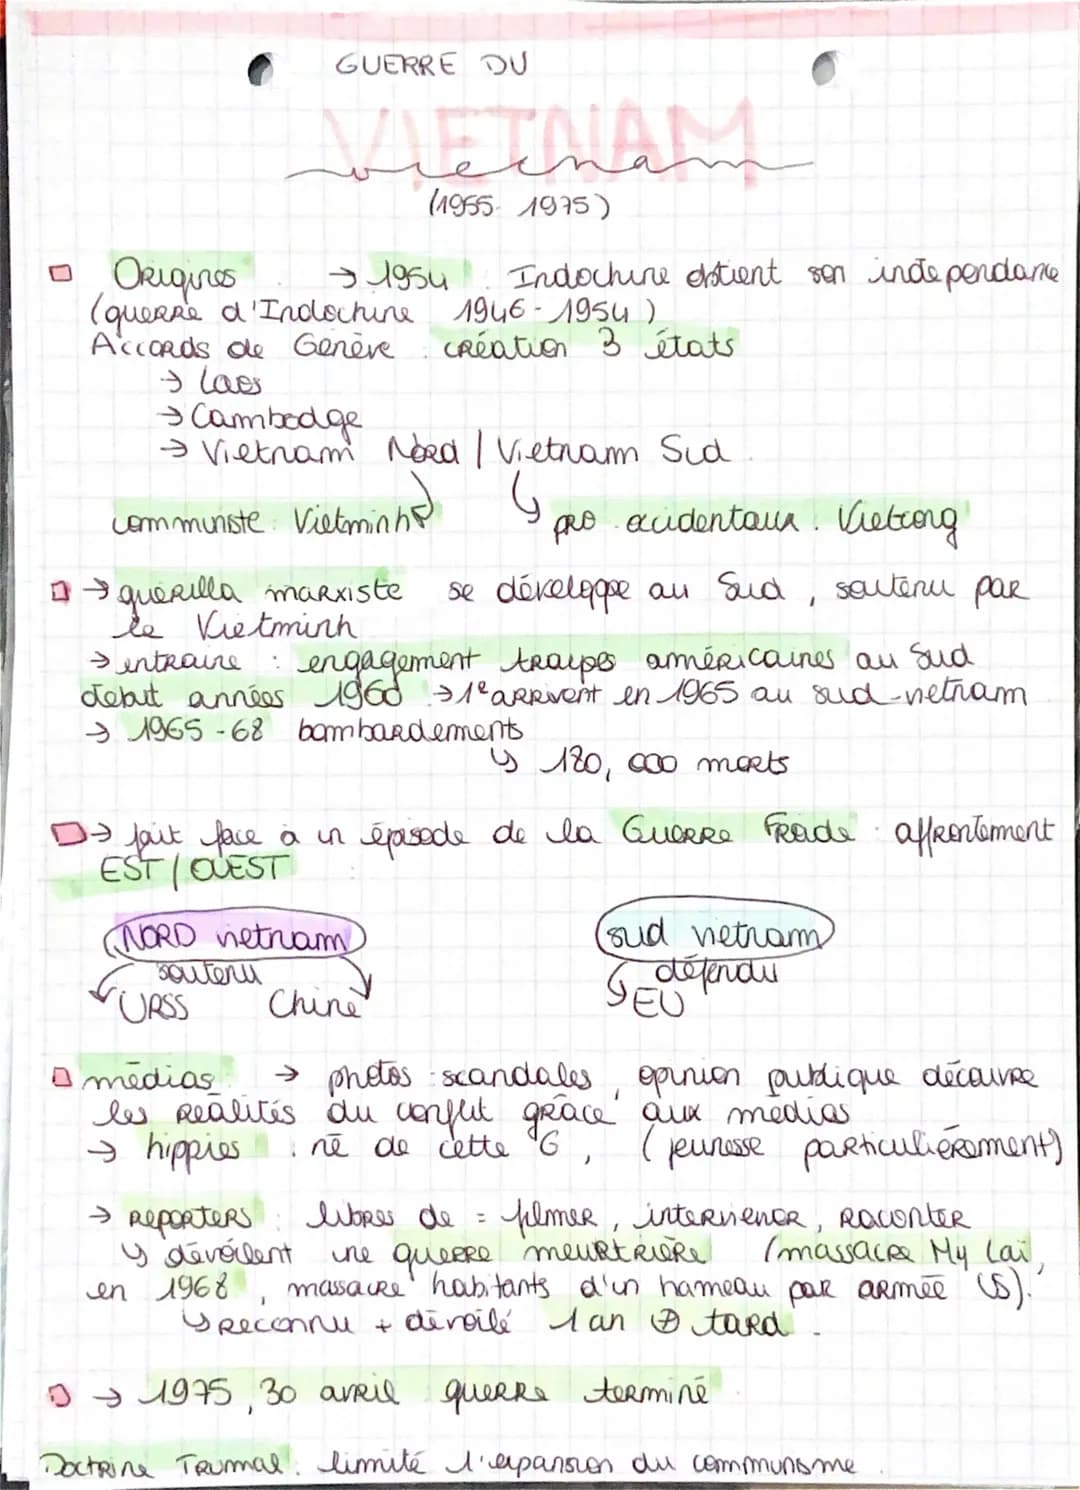 GUERRE DU
VIETNAM
vietnam
(1955-1975)
Origines → 1954 : Indochine obtient son indépendance
(guerre d'Indochine 1946-1954)
Accords de Genève : création 3 états
→ Laos
→ Cambodge
→ Vietnam Nord | Vietnam Sud
communiste : Vietminh
pro-occidentaux : Vietcong
→ guérilla marxiste se développe au Sud, soutenu par
le Vietminh
→ entraine : engagement troupes américaines au Sud
début années 1960 → 1e arrivent en 1965 au sud-vietnam
→ 1965-68 bombardements
↳ 180,000 morts
→ fait face à un épisode de la Guerre Froide : affrontement
EST / OUEST
NORD vietnam
soutenu
URSS Chine
sud vietnam
défendu
EU
médias → photos : scandales, opinion publique découvre
les réalités du conflit grâce aux médias
→ hippies : né de cette G, (jeunesse particulièrement)
→ reporters : libres de = filmer, interviener, raconter
↳ dévoilent une guerre meurtrière (massacre My Laï,
en 1968, massacre habitants d'un hameau par armée US).
↳ reconnu + dévoilé 1 an ⊕ tard.
→ 1975, 30 avril guerre terminé
Doctrine Trumal : limité l'expansion du communisme.